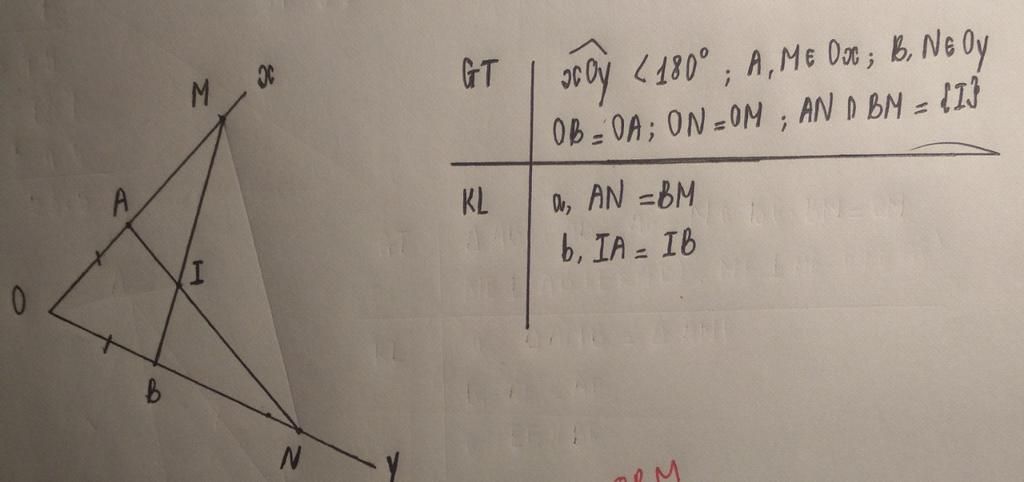 M x
A
I
O
B
N y
GT xOy < 180°; A, M ∈ Ox; B, N ∈ Oy
OB = OA; ON = OM; AN ∩ BM = {I}
KL a, AN = BM
b, IA = IB